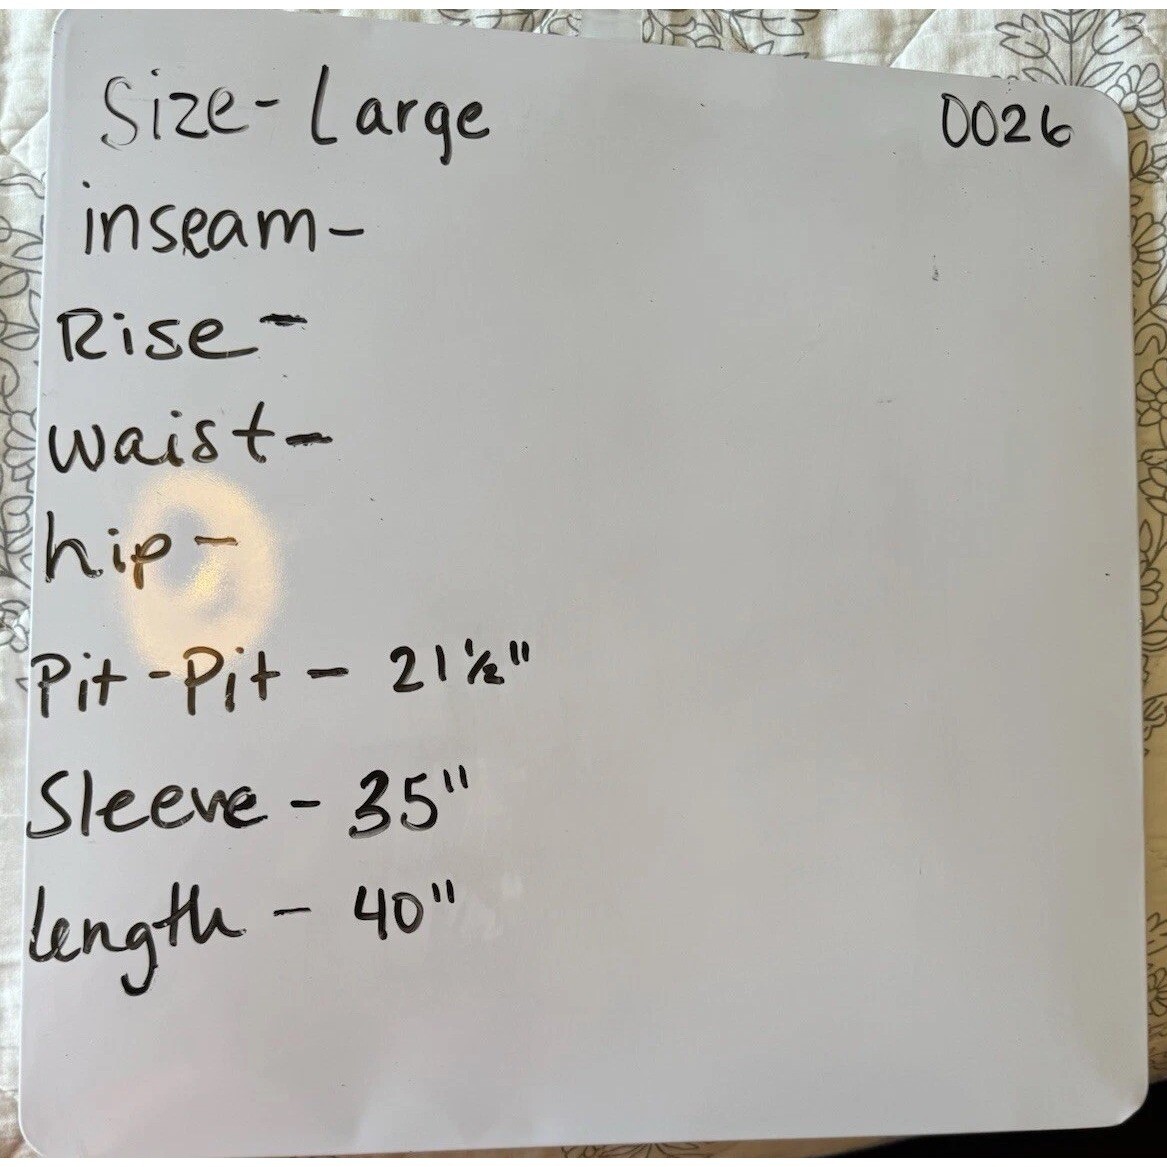 Size- Large 0026
inseam-
Rise-
waist-
hip-
Pit-Pit - 21 ½"
Sleeve - 35"
length - 40"